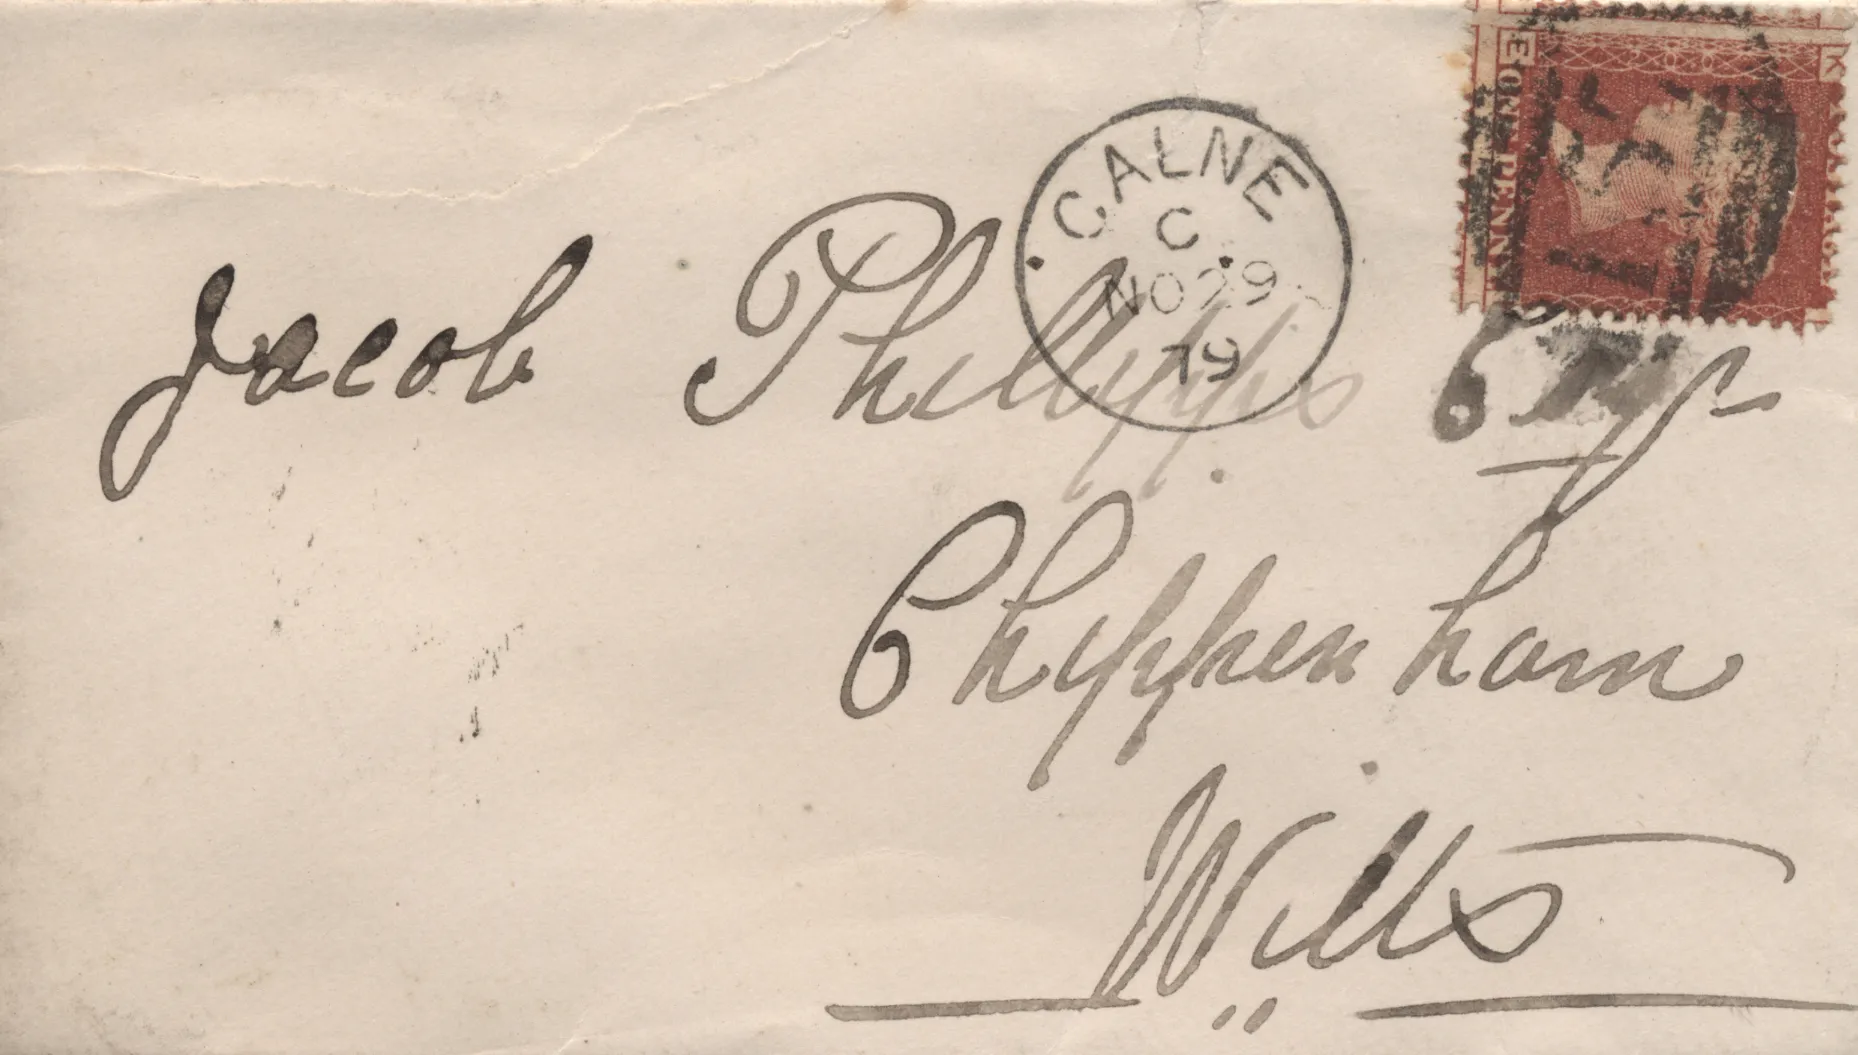 E K
ONE PENNY
CALNE
C
NO 29
79
Jacob Phillipps Esqr
Chippenham
Wilts